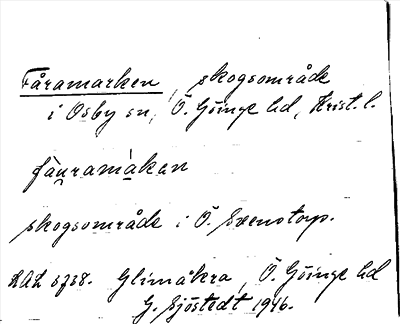 Fåramarken, skogsområde
i Osby sn, Ö. Göinge hd, Krist. l.
fàu̯ramàkan
skogsområde i Ö. Svenstorp.
LAL 3738. Glimåkra, Ö. Göinge hd
G. Sjöstedt 1946.